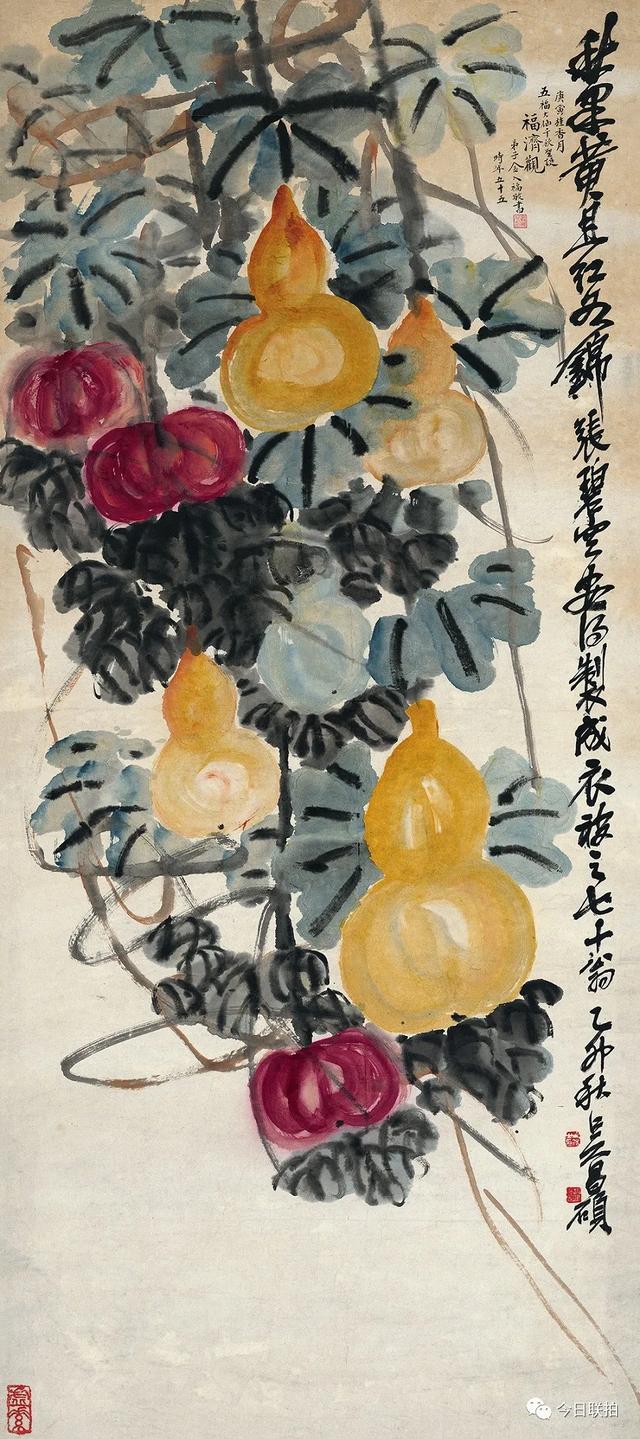 秋果黄且紅如錦張碧空安得製成衣被之七十翁 乙卯秋 吳昌碩
庚寅桂香月
五福大仙千秋
福濟觀
弟子金入福敬書
時年五十五
今日联拍